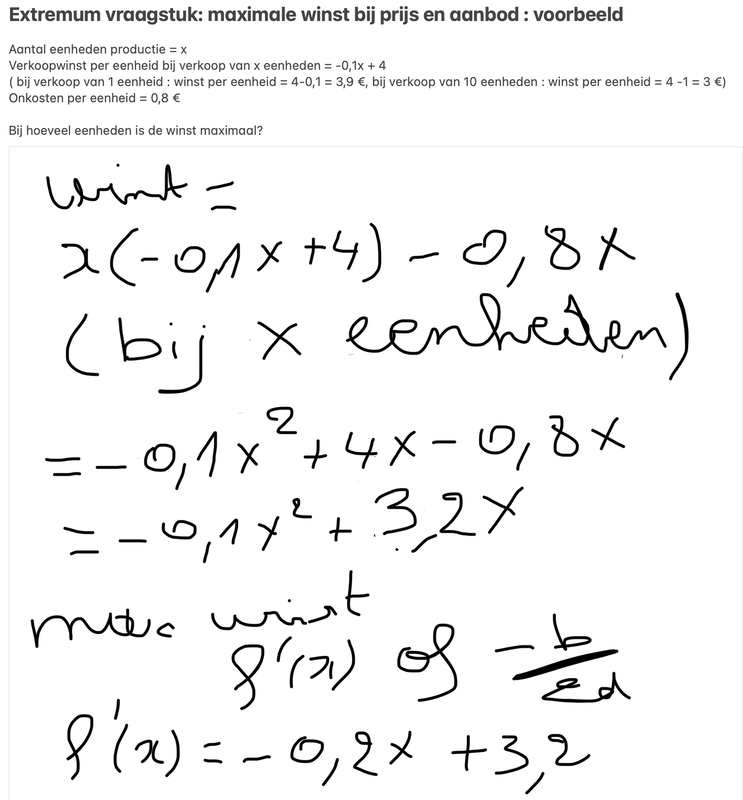 Extremum vraagstuk: maximale winst bij prijs en aanbod : voorbeeld
Aantal eenheden productie = x
Verkoopwinst per eenheid bij verkoop van x eenheden = -0,1x + 4
( bij verkoop van 1 eenheid : winst per eenheid = 4-0,1 = 3,9 €, bij verkoop van 10 eenheden : winst per eenheid = 4 -1 = 3 €)
Onkosten per eenheid = 0,8 €
Bij hoeveel eenheden is de winst maximaal?
winst =
x(-0,1x +4) - 0,8x
(bij x eenheden)
= -0,1x² + 4x - 0,8x
= -0,1x² + 3,2x
max winst
f'(x) of -b/2a
f'(x) = -0,2x + 3,2